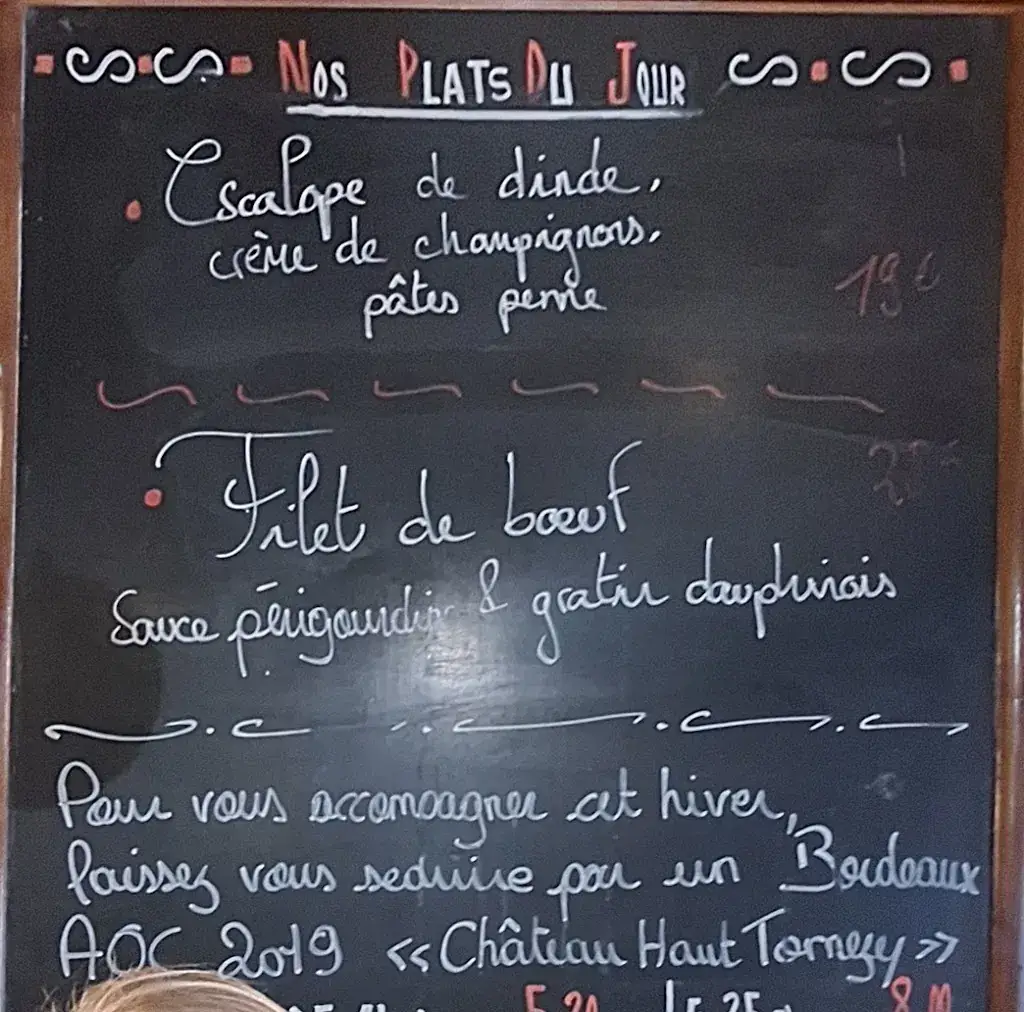 Nos Plats Du Jour
Escalope de dinde,
crème de champignons,
pâtes penne
19€
Filet de bœuf
Sauce périgourdin & gratin dauphinois
Pour vous accompagner cet hiver,
laissez vous seduire par un Bordeaux
AOC 2019 «Château Haut Tornezy»